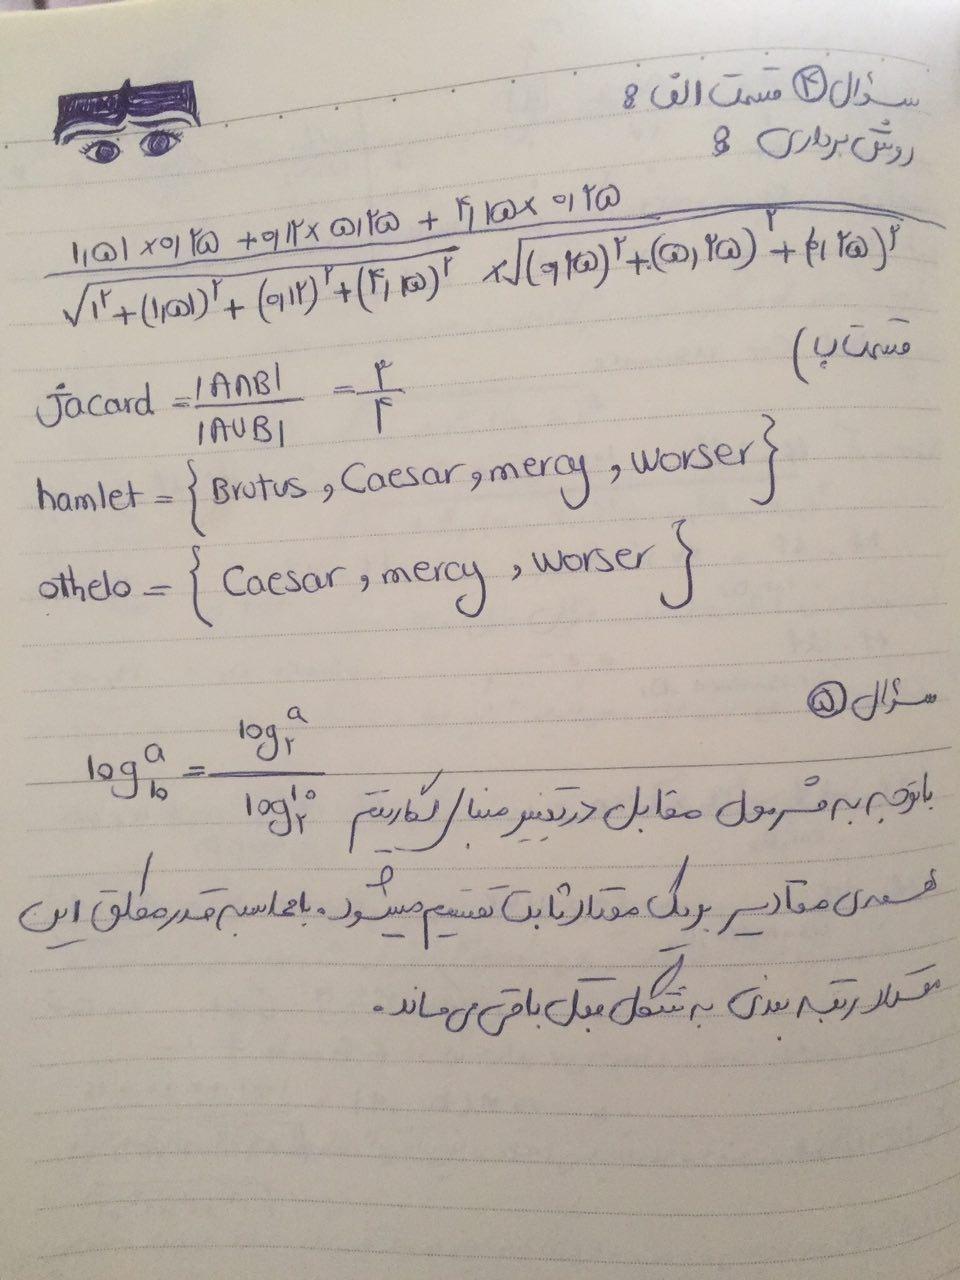 سؤال ۴ قسمت الف :
روش برداری :
۱,۵۱ × ۰,۲۵ + ۰,۱۲ × ۵,۲۵ + ۴,۱۵ × ۰,۲۵
√۱² + (۱,۵۱)² + (۰,۱۲)² + (۴,۱۵)² × √(۰,۲۵)² + (۵,۲۵)² + (۰,۲۵)²
قسمت ب)
jacard = |A∩B| / |A∪B| = ۳/۴
hamlet = { Brutus , Caesar , mercy , worser }
othelo = { Caesar , mercy , worser }
سؤال ۵
log_b^a = log_۲^a / log_۲^۱۰
باتوجه به فرمول مقابل در تغییر مبنای لگاریتم
همه‌ی مقادیر بر یک مقدار ثابت تقسیم میشود. با محاسبه قدر مطلق این
مقدار رتبه بندی به شکل قبل باقی می ماند.